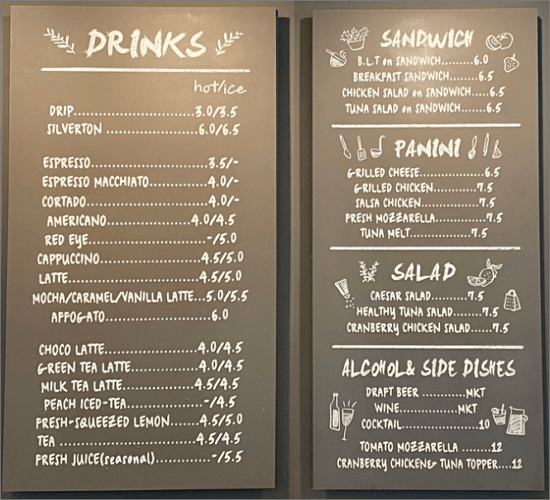 DRINKS
hot/ice
DRIP....................3.0/3.5
SILVERTON ................6.0/6.5
ESPRESSO....................3.5/-
ESPRESSO MACCHIATO..........4.0/-
CORTADO.....................4.0/-
AMERICANO...............4.0/4.5
RED EYE...................-/5.0
CAPPUCCINO.................4.5/5.0
LATTE......................4.5/5.0
MOCHA/CARAMEL/VANILLA LATTE...5.0/5.5
AFFOGATO..................6.0
CHOCO LATTE................4.0/4.5
GREEN TEA LATTE............4.0/4.5
MILK TEA LATTE............4.5/4.5
PEACH ICED-TEA.............-/4.5
FRESH-SQUEEZED LEMON.......4.5/5.0
TEA ......................4.5/4.5
FRESH JUICE(seasonal)..........-/5.5
SANDWICH
B.L.T on SANDWICH.......6.0
BREAKFAST SANDWICH......6.5
CHICKEN SALAD on SANDWICH.....6.5
TUNA SALAD on SANDWICH......6.5
PANINI
GRILLED CHEESE..............6.5
GRILLED CHICKEN..........7.5
SALSA CHICKEN............7.5
FRESH MOZZARELLA...........7.5
TUNA MELT.............7.5
SALAD
CAESAR SALAD.........7.5
HEALTHY TUNA SALAD.......7.5
CRANBERRY CHICKEN SALAD.....7.5
ALCOHOL& SIDE DISHES
DRAFT BEER ..........MKT
WINE..............MKT
COCKTAIL..................10
TOMATO MOZZARELLA .......12
CRANBERRY CHICKEN& TUNA TOPPER....12